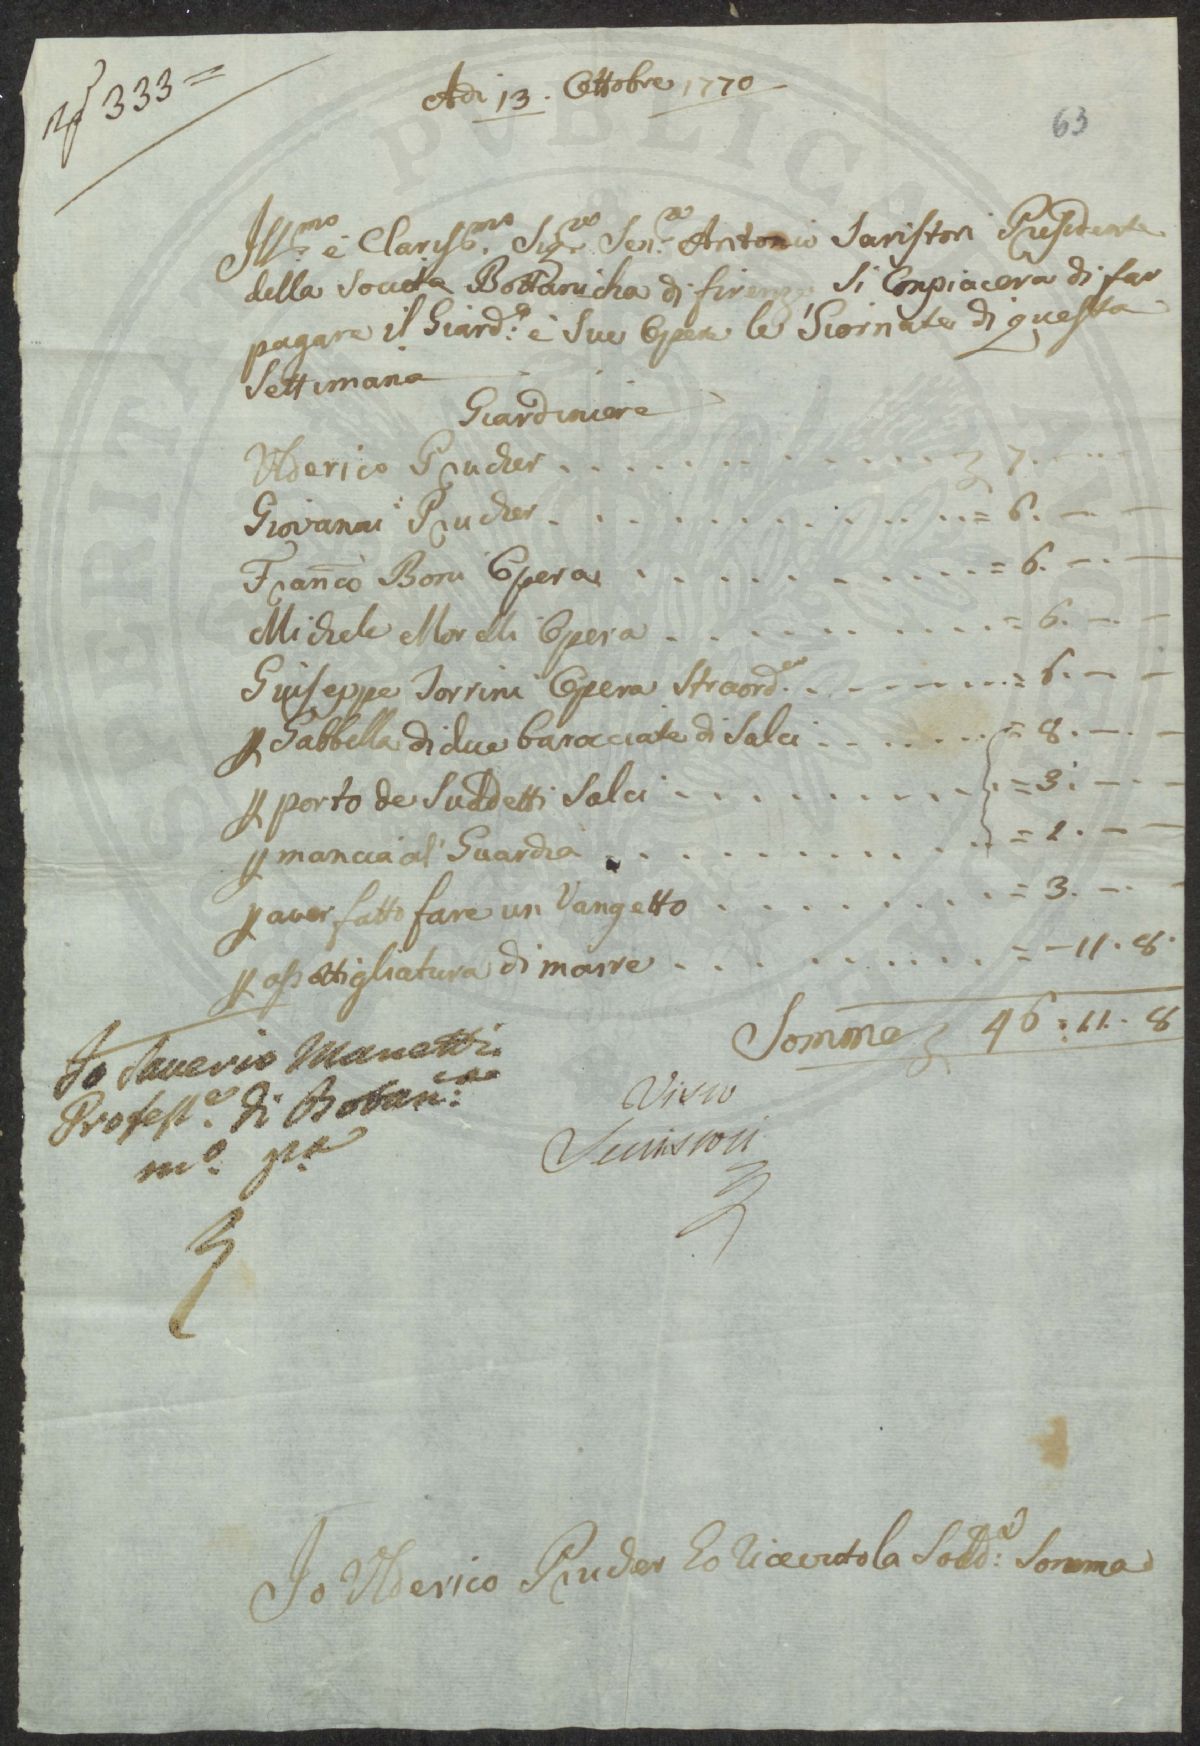 N.º 333 =
Adi 13. Ottobre 1770
63
Ill:mo e Clariss:mo Sig:re Sen:re Antonio Saristori Presidente
della Società Bottanicha di firenze Si Conpiacerà di far
pagare il Giard:e è Sue Opere le Giornate di questa
Settimana
Giardiniere
Ulderico Prucher . . . . . . . . . . . . £ 7. — ..
Giovanni Prucher . . . . . . . . . . . . = 6. — . —
Franco Boni Opera . . . . . . . . . . = 6. — . —
Michele Morelli Opera . . . . . . . . . = 6. — . —
Guiseppe Torrini Opera Straord:ra . . . . . . . = 6. — . —
p Gabbella di due baracciate di Salci . . . . . . . = 8. — . —
p porto de Suddetti Salci . . . . . . . . . . = 3. — . —
p mancia al' Guardia . . . . . . . . . . = 1. — . —
p aver fatto fare un Vangetto . . . . . . . . . = 3. — . —
p assottigliatura di marre . . . . . . . . . . = — 11. 8.
Somma £ 46 : 11. 8
Io Saverio Manetti
Profess:e di Botan:ca
m:o p:a
Visto
Serristori
Io Ulderico Prucher ho Ricevuto la Sodd:a Somma